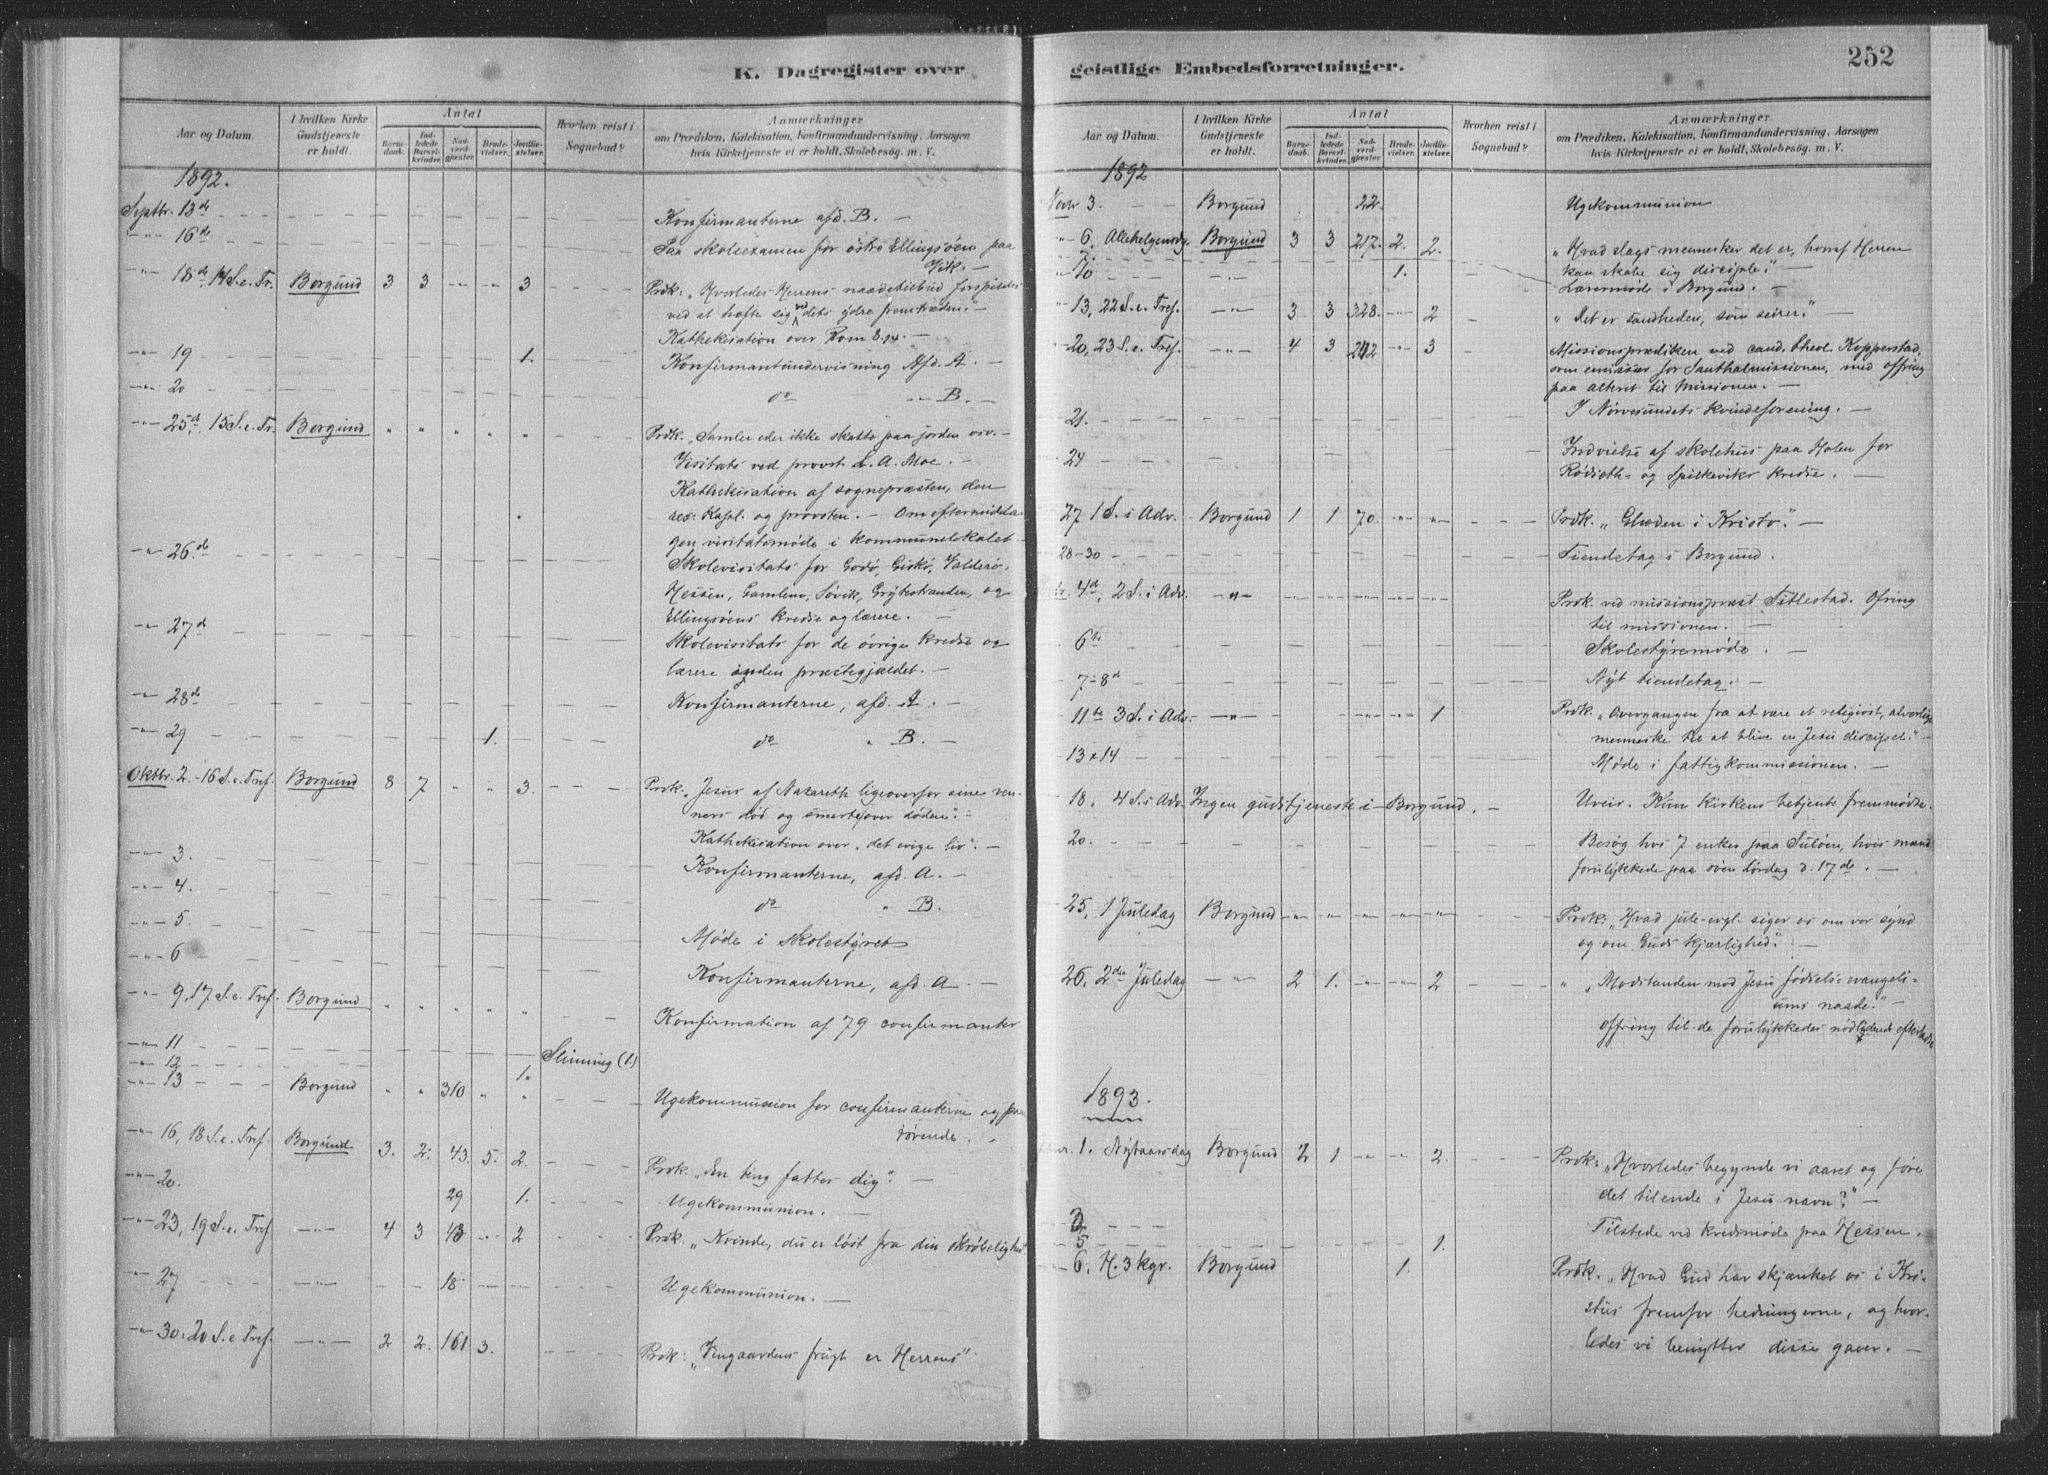 K. Dagregister over
Aar og Datum.
I hvilken Kirke Gudstjeneste er holdt.
Antal
Barnedaab.
Indledede Barselkvinder.
Nadverdgjæster.
Brudevielser.
Jordfæstelser.
Hvorhen reist i Sognebud?
Anmærkninger
om Prædiken, Katekisation, Konfirmandundervisning, Aarsagen
hvis Kirketjeneste ei er holdt, Skolebesøg m. V.
1892.
Septbr. 13de Konfirmanterne afd. B. —
" 16de Paa skoleexamen for østre Ellingsøen paa
Vik. —
" 18de 14 S. e. Tr. Borgund 3 3 " " 3 Prdk: "Hvorledes Herrens naadetilbud forspildes
ved at hæfte sig ved dets ydre fremtræden". —
Kathekisation over Rom 8,14. —
" 19 1. Konfirmantundervisning Afd. A —
" 20 do " B. —
" 25de, 15 S. e. Tr. Borgund " " " " " Prdk. "Samler eder ikke skatte paa jorden osv. —
Visitats ved provst L. A. Moe. —
Kathekisation af sognepræsten, den
res. Kapl. og provsten. — Om eftermidda-
gen visitatsmøde i kommunelokalet
" 26.de Skolevisitats for Godø, Giskø, Valderø,
Hessen, Gamlem, Søvik, Grytestranden, og
Ellingsøens kredse og lærere. —
" 27de Skolevisitats for de øvrige kredse og
lærere inden præstegjældet. —
" 28de Konfirmanterne, afd. A. —
" 29 1. do " B. —
Oktbr. 2. 16 S. e. Tref. Borgund 8 7 " " 3. Prdk. "Jesus af Nazareth ligeoverfor sine ven-
ners død og smerte over døden". —
Kathekisation over "det evige liv". —
" 3. Konfirmanterne, afd. A. —
" 4. do " B.
" 5. Møde i skolestyret
" 6 Konfirmanterne, afd. A. —
" 9, 17 S. e. Tref. Borgund " " " " " Konfirmation af 79 confirmanter
" 11 Slinning (1.)
" 12 1.
" 13 Borgund " " 310 " " Ugekommunion for confirmanterne og paa-
rørende.
" 16, 18 S. e. Tref. Borgund 3. 2. 43. 5. 2. Prdk. "En ting fattes dig". —
" 20. 29 1. Ugekommunion. —
" 23, 19 S. e. Tref — " — 4 3 43 " 2 Prdk: "Kvinde, du er løst fra din skrøbelighed
" 27 — " — 18 Ugekommunion. —
" 30. 20 S. e Tref. — " — 2 2. 161 3. Prdk: "Vingaardens frugt er Herrens".
geistlige Embedsforretninger.
252
Aar og Datum.
I hvilken Kirke Gudstjeneste er holdt.
Antal
Barnedaab.
Indledede Barselkvinder.
Nadverdgjæster.
Brudevielser.
Jordfæstelser.
Hvorhen reist i Sognebud?
Anmærkninger
om Prædiken, Katekisation, Konfirmandundervisning, Aarsagen
hvis Kirketjeneste ei er holdt, Skolebesøg m. V.
1892
Novbr 3. Borgund 22. Ugekommunion
" 6. Allehelgensdg. Borgund 3 3 217. 2. 2. "Hvad slags mennesker det er, hvoraf Herren
kan skabe sig disciple". —
" 10 — " — 1. Læsermøde i Borgund. —
" 13, 22 S. e. Tref. — " — 3 3 328. " 2 "Det er sandheden, som seirer". —
" 20, 23 S. e. Tref. — " — 4 3 242 " 3 Missionsprædiken ved cand. theol. Kopperstad,
som emissær for Santhalmissionen, med offring
paa alteret til Missionen. —
21. I Nørvesundets Kvindeforening. —
24 Indvielse af skolehus paa Holen for
Rødseth- og Spilkeviks kredse. —
27 1 S. i Adv. Borgund 1 1 70. " " Prdk. "Glæden i Kristo". —
28-30 Tiendetag i Borgund.
4de, 2 S. i Adv. — " — Prdk. ved missionsprest Titlestad. Ofring
til missionen. —
6te Skolestyremøde. —
7-8de Nyt tiendetag. —
11te 3 S. i Adv. — " — 1 Prdk. "Overgangen fra at være et religiøst, alvorligt
menneske til at blive en Jesu discipel". —
13 & 14 Møde i fattigkommissionen. —
18. 4 S. i Adv. Ingen gudstjeneste i Borgund. — Uveir. Kun kirkens betjente fremmødte.
20. Besøg hos 7 enker paa Suløen, hvis mænd
forulykkede paa søen Lørdag d. 17de. —
25, 1 Juledag Borgund " " " " " Prdk: "Hvad jule-evgl. siger os om vor synd
og om Guds kjærlighed". —
26. 2den Juledag — " — 2 1. " " 2 " "Modstanden mod Jesu fødsels-evangeli-
ums naade". —
offring til de forulykkedes nødlidende efterladte
1893.
1. Nytaarsdag Borgund 2 1 " " 2. Prdk: "Hvorledes begynde vi aaret og føre
det tilende i Jesu navn?" —
3 Tilstede ved kredsmøde paa Hessen. —
5 1.
6, H. 3 kgr. Borgund 1. Prdk. "Hvad Gud har skjænket os i Kri-
stus fremfor hedningerne, og hvor-
ledes vi benytter disse gaver. —